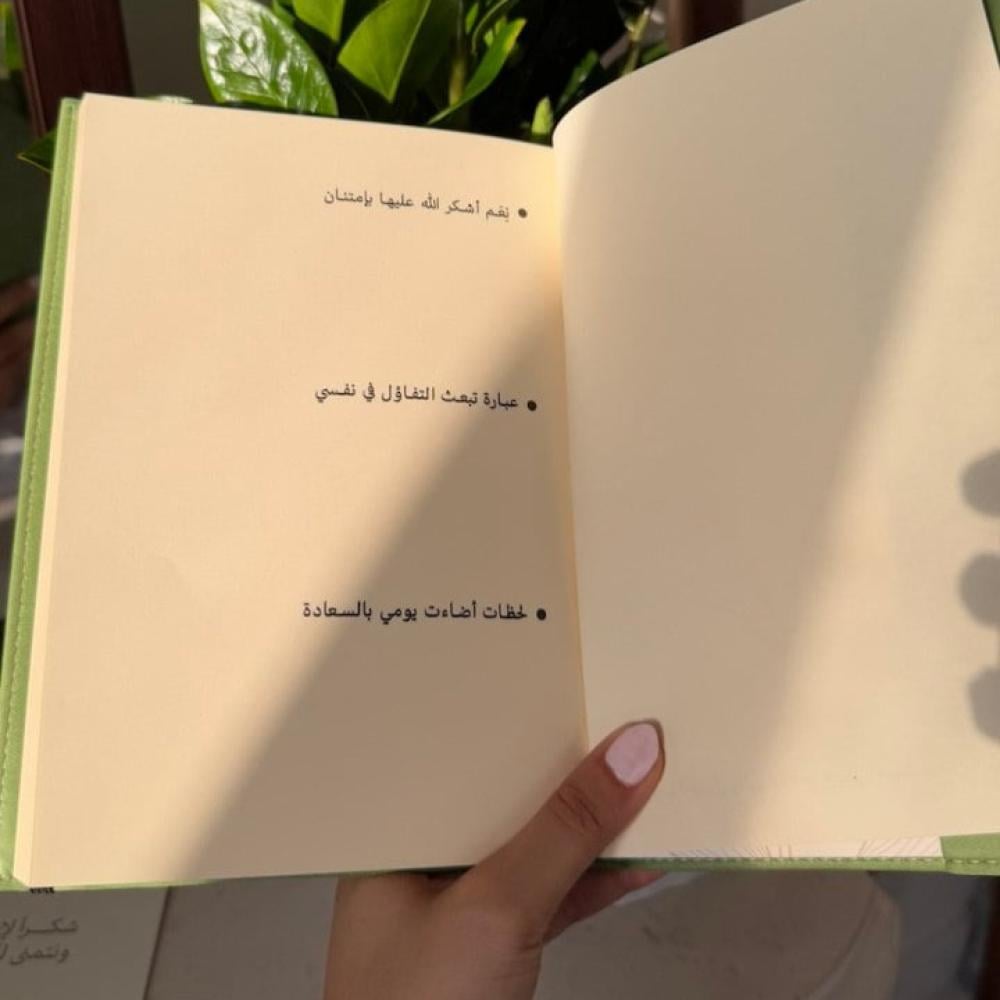 • نِعَم أشكر الله عليها بإمتنان
• عبارة تبعث التفاؤل في نفسي
• لحظات أضاءت يومي بالسعادة
شكراً
ونتمنى